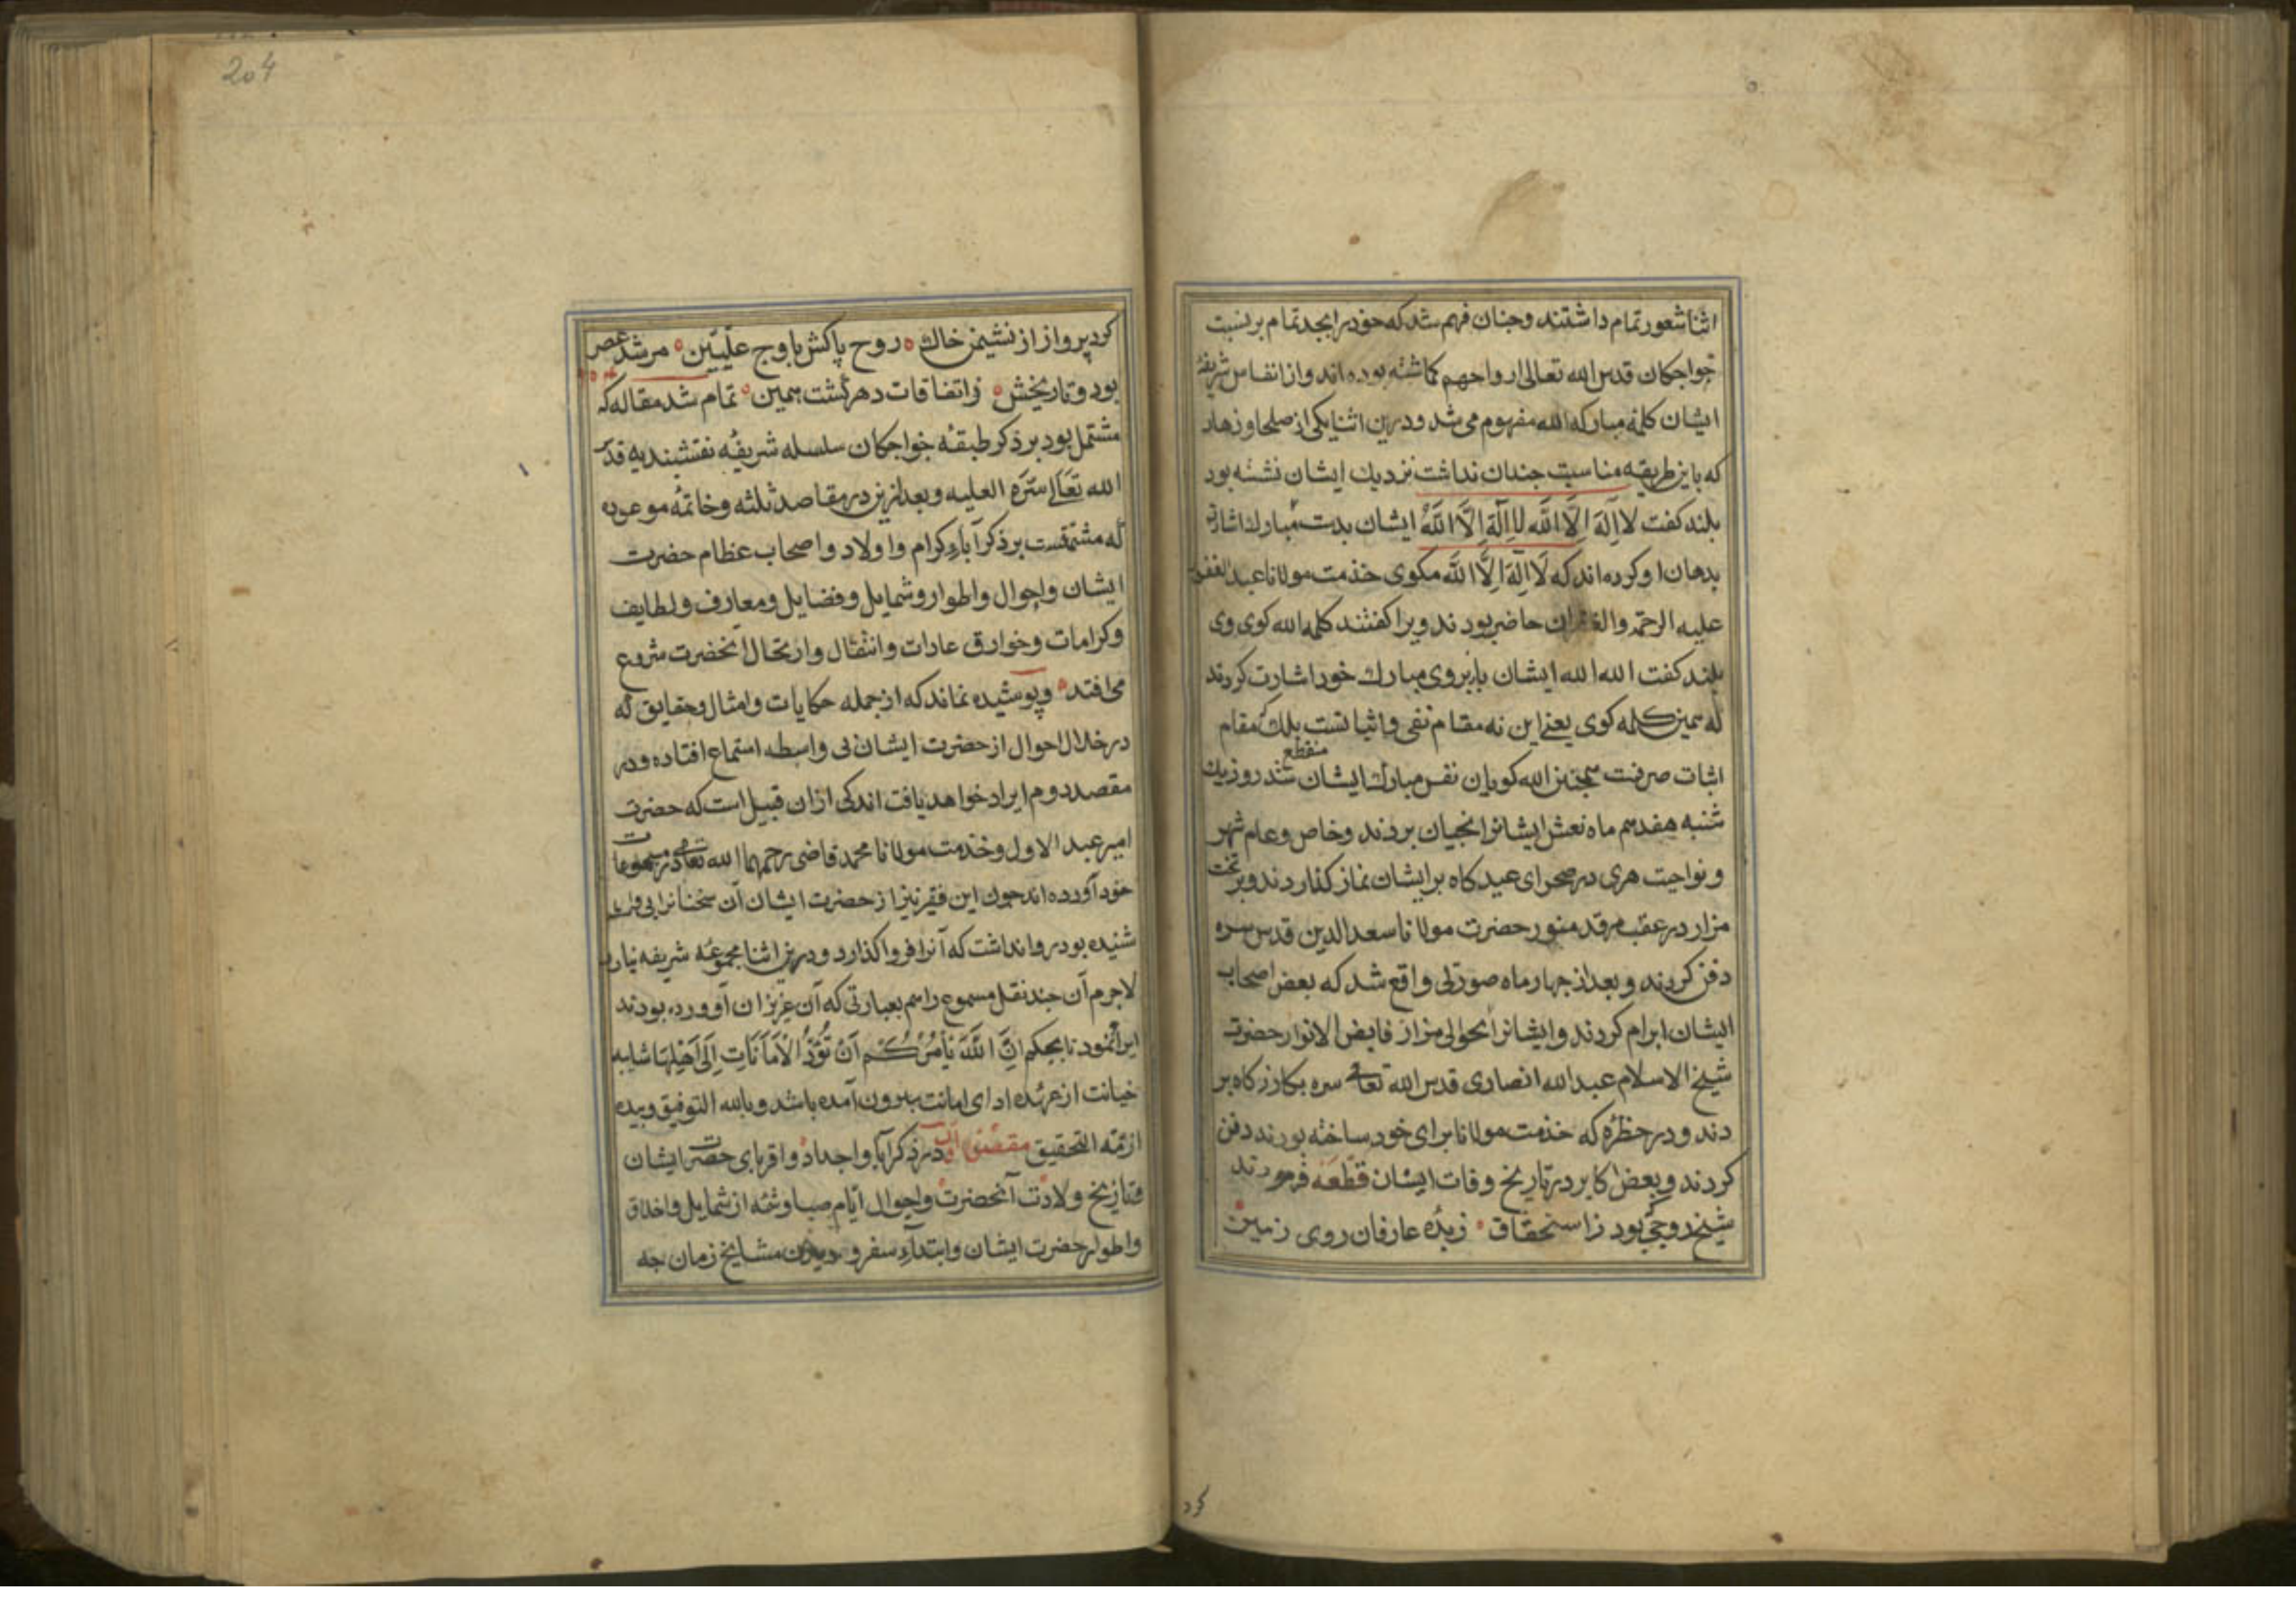 اثنا شعور تمام داشتند وجنان فهم شد که خود را بجد تمام بر نسبت
خواجکان قدس الله تعالی ارواحهم کماشته بوده اند واز انفاس شریفۀ
ایشان کلمۀ مبارکه الله مفهوم می شد ودرین اثنا یکی از صلحا وزهاد
که باین طریقه مناسبت جندان نداشت نزدیك ایشان نشسته بود
بلند کفت لا اِلَهَ اِلَّا اللَّه لا اِلَهَ اِلَّا اللَّهُ ایشان بدست مبارك اشارت
بدهان او کرده اند که لَا اِلَهَ اِلَّا اللَّه مکوی خذمت مولانا عبد الغفور
علیه الرحمة والغفران حاضر بودند ویرا کفتند کلمه الله کوی وی
بلند کفت الله الله ایشان بابروی مبارك خود اشارت کردند
که همین کلمه کوی یعنی این نه مقام نفی واثباتست بلك که مقام
اثبات صرفست همجنین الله کویان نفس مبارك ایشان منقطع شد روز یك
شنبه هفدهم ماه نعش ایشانرا بخیابان بردند وخاص وعام شهر
ونواحیت هری در صحرای عید کاه بر ایشان نماز کذاردند وبر تخت
مزار در عقب مرقد منور حضرت مولانا سعد الدین قدس سره
دفن کردند وبعد از جهار ماه صورتی واقع شد که بعض اصحاب
ایشان ابرام کردند وایشانرا بحوالی مزار فایض الانوار حضرت
شیخ الاسلام عبد الله انصاری قدس الله تعالی سره بکازرکاه بر
دند ودر حظرۀ که خذمت مولانا برای خود ساخته بودند دفن
کردند وبعض اکابر در تاریخ وفات ایشان قطعه فرمودند
شیخ روحی بود ز استحقاق ۰ زبدۀ عارفان روی زمین
کرد
204
کرد پرواز از نشیمن خاك ۰ روح پاکش باوج علّیین ۰ مرشد عصر
بود وتاریخش ۰ ز اتفاقات دهر کشت همین ۰ تمام شد مقاله که
مشتمل بود بر ذکر طبقۀ خواجکان سلسله شریفۀ نقشبندیه قدّس
الله تعالی اسرّه العلیه وبعد ازین در مقاصد ثلثه وخاتمۀ موعوده
که مشتملست بر ذکر آباء کرام واولاد واصحاب عظام حضرت
ایشان واحوال واطوار وشمایل وفضایل ومعارف ولطایف
وکرامات وخوارق عادات وانتقال وارتحال آنحضرت شروع
می افتد ۰ وپوشیده نماند که از جمله حکایات وامثال وحقایق که
در خلال احوال از حضرت ایشان بی واسطه استماع افتاده ودر
مقصد دوم ایراد خواهد یافت اندکی ازان قبیل است که حضرت
امیر عبد الاول وخذمت مولانا محمد قاضی رحمهما الله تعالی در مسموعات
خود آورده اند جون این فقیر نیز از حضرت ایشان آن سخنانرا بی واسطه
شنیده بود روا نداشت که آنرا فرو اکذارد ودرین اثنا مجموعۀ شریفه نیارد
لاجرم آن جند نقل مسموع را هم بعبارتی که آن عزیزان آورده بودند
ایراد نمود تا بحکم اِنَّ اللَّهَ یَأمُرُکُم اَنْ تُؤَدُّوا الْاَمَانَاتِ اِلَی اَهْلِهَا شایبه
خیانت از عهدۀ ادای امانت بیرون آمده باشد وبالله التوفیق وبیده
ازمّة التحقیق مقصد اول در ذکر آبا واجداد واقربای حضرت ایشان
وتاریخ ولادت آنحضرت واحوال ایّام صبا وشمۀ از شمایل واخلاق
واطوار حضرت ایشان وابتداء سفر ودیدن مشایخ زمان جه